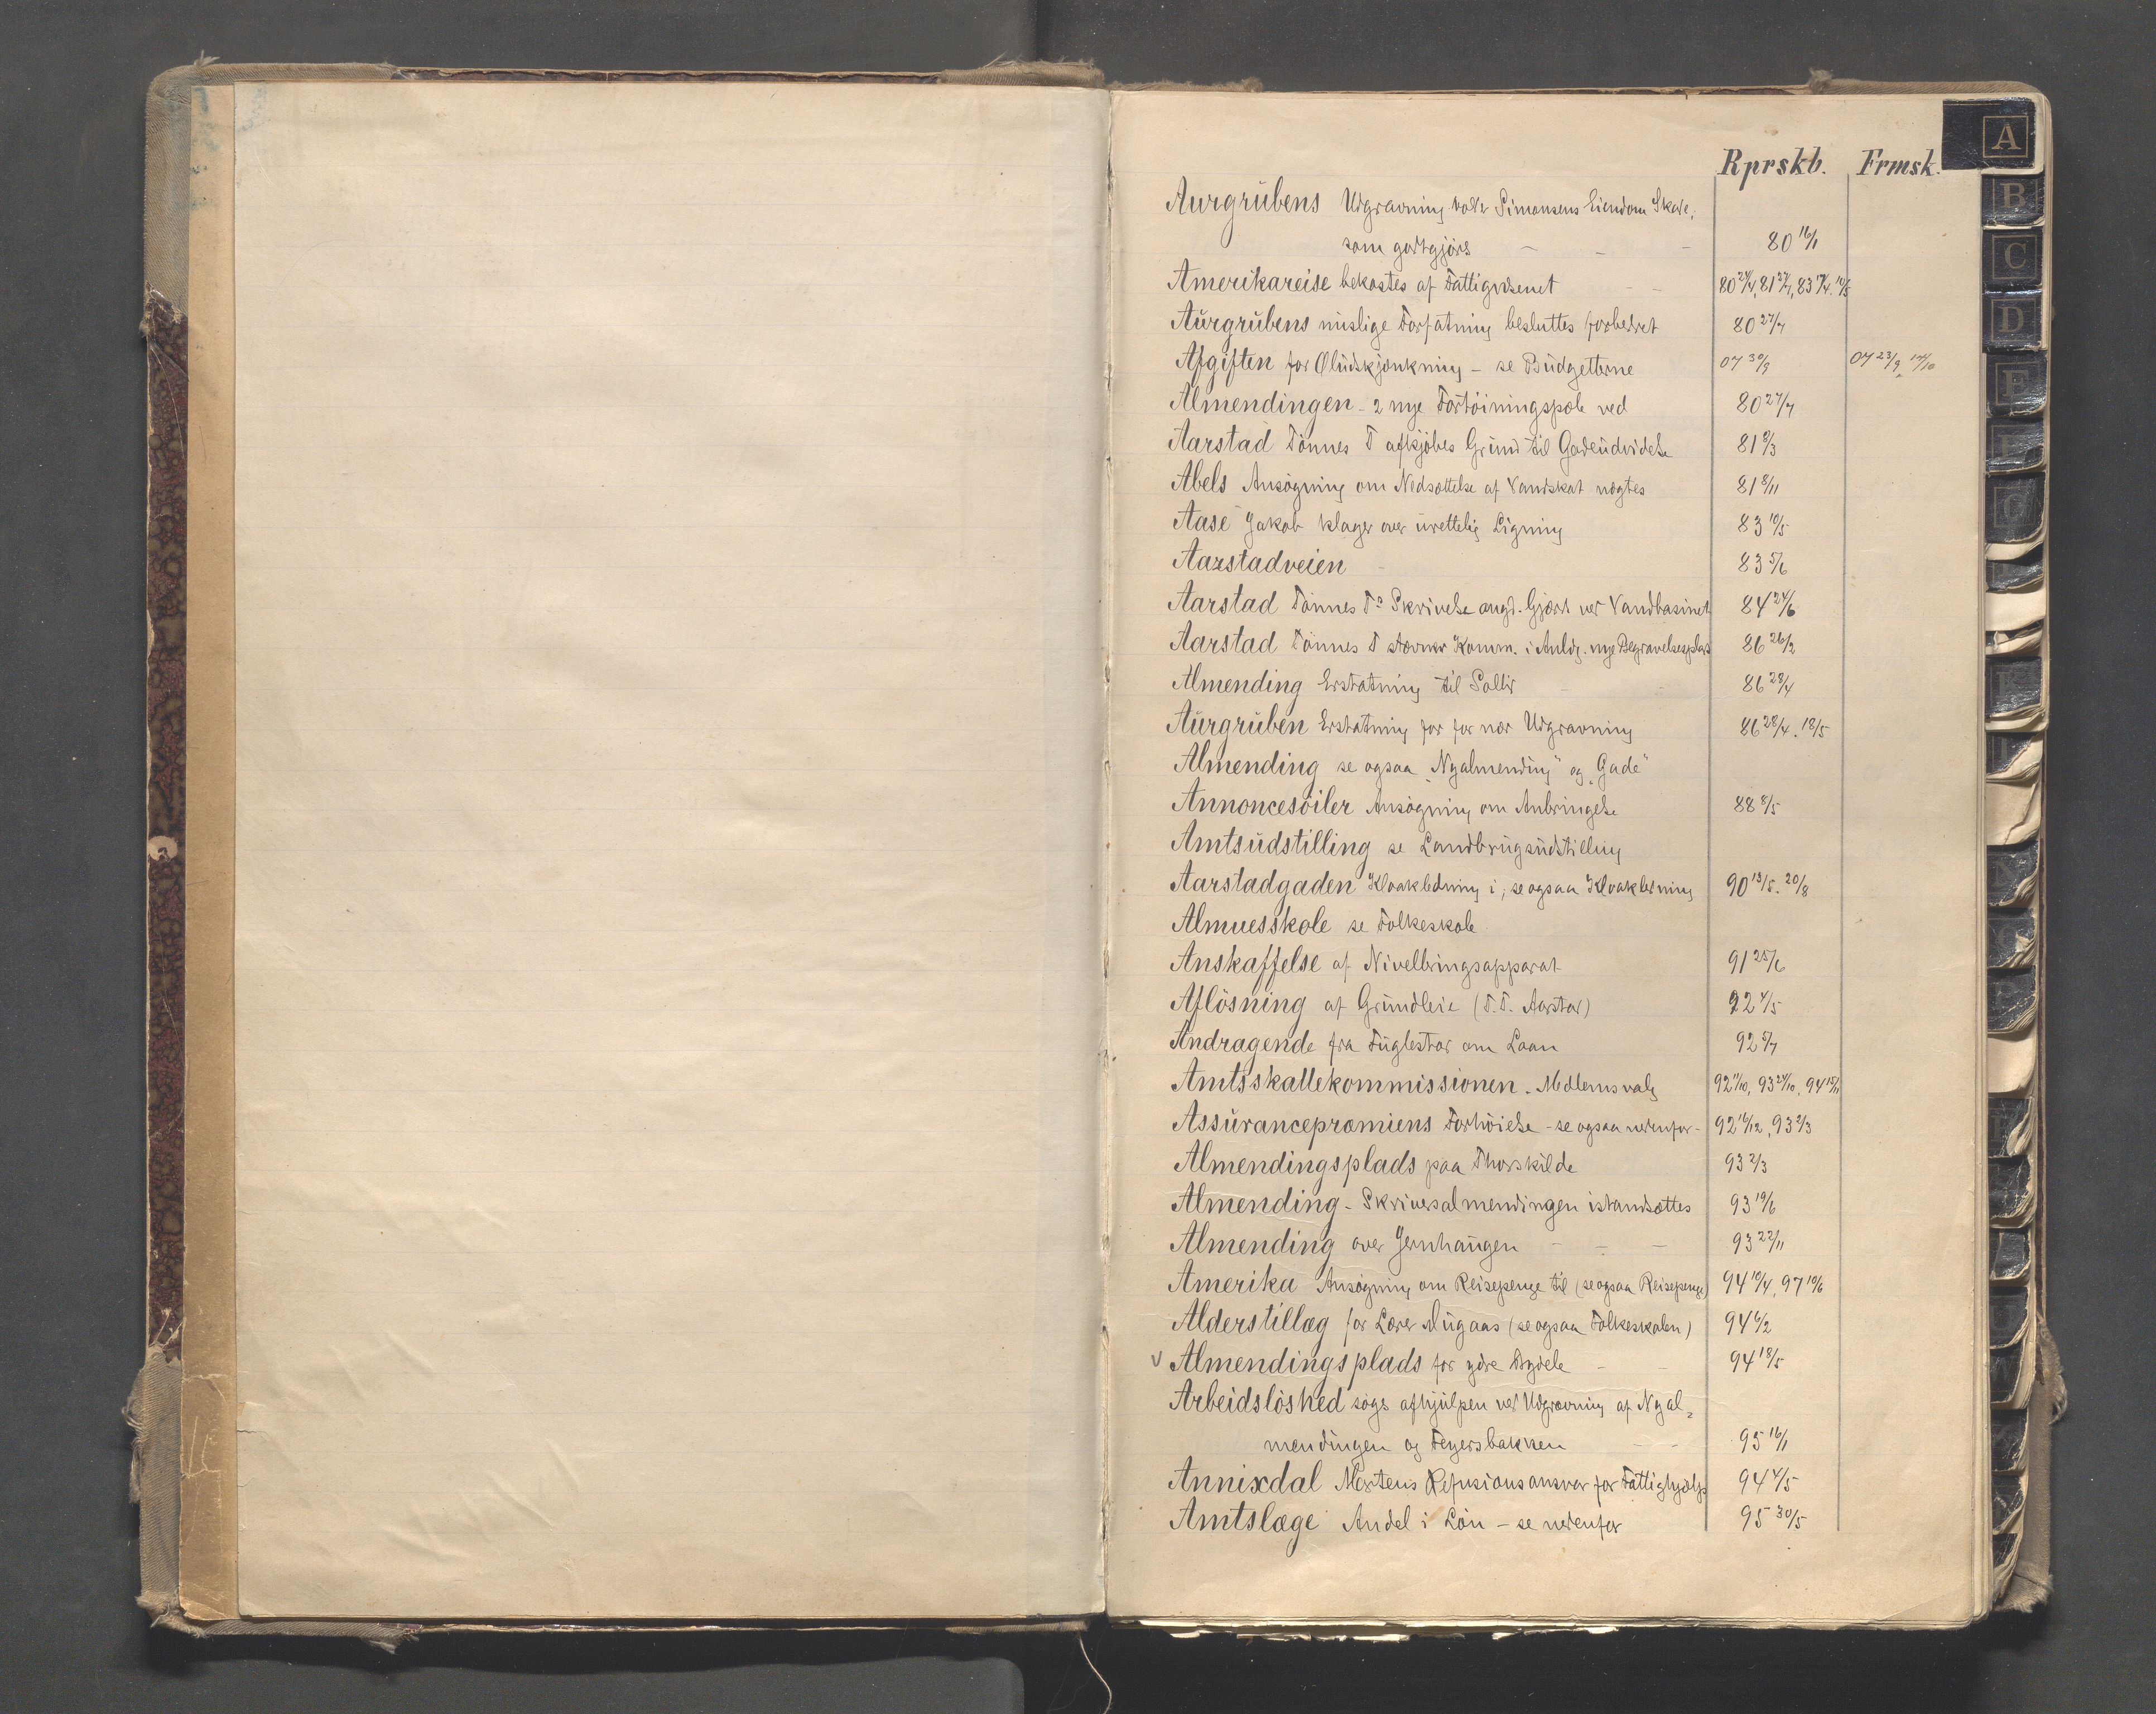 A
B
C
D
E
F
G
K
Rprskb. Frmsk.
Aurgrubens Udgravning volder Simonsens Eiendom Skade,
som godtgjøres - - - 80 16/1
Amerikareise bekostes af Fattigvæsenet - - 80 24/4, 81 27/7, 83 17/4. 10/5
Aurgrubens mislige Forfatning besluttes forbedret 80 27/7
Afgiften for Øludskjænkning - se Budgetterne 07 30/9 07 23/9, 14/10
Almendingen - 2 nye Fortøiningspæle ved 80 27/7
Aarstad Tønnes T afkjøbes Grund til Gadeudvidelse 81 8/3
Abels Ansøgning om Nedsættelse af Vandskat nægtes 81 8/11
Aase Jakob klager over urettelig Ligning 83 10/5
Aarstadveien - 83 5/6
Aarstad Tønnes Ts Skrivelse angd. Gjærde ved Vandbasinet 84 24/6
Aarstad Tønnes T stævner Komm. i Anldg. nye Begravelsesplads 86 26/2
Almending Erstatning til - - 86 28/4
Aurgruben Erstatning for for nær Udgravning 86 28/4. 18/5
Almending se ogsaa „Nyalmending" og „Gade"
Annoncesøiler Ansøgning om Anbringelse 88 8/5
Amtsudstilling se Landbrugsudstilling
Aarstadgaden Kloakledning i, se ogsaa Kloakledning 90 13/5. 20/8
Almuesskole se Folkeskole
Anskaffelse af Nivelleringsapparat 91 25/6
Afløsning af Grundleie (T. T. Aarstad) 92 4/5
Andragende fra Fuglestad om Laan 92 5/7
Amtsskattekommissionen. Medlemsvalg 92 11/10, 93 24/10, 94 15/11
Assurancepræmiens Forhøielse - se ogsaa nedenfor - 92 16/12, 93 2/3
Almendingsplads paa Thorskilde 93 2/3
Almending - Skriveralmendingen istandsættes 93 19/6
Almending over Jernhaugen - - - 93 22/11
Amerika Ansøgning om Reisepenge til (se ogsaa Reisepenge) 94 10/4, 97 10/6
Alderstillæg for Lærer Augaas (se ogsaa Folkeskolen) 94 6/2
v Almendingsplads for ydre Bydele - - 94 18/5
Arbeidsløshed søges afhjulpen ved Udgravning af Nyal-
mendingen og Feyersbakken - - 95 16/1
Annixdal Mortens Refusionsansvar for Fattighjælp 94 4/5
Amtslæge Andel i Løn - se nedenfor 95 30/5